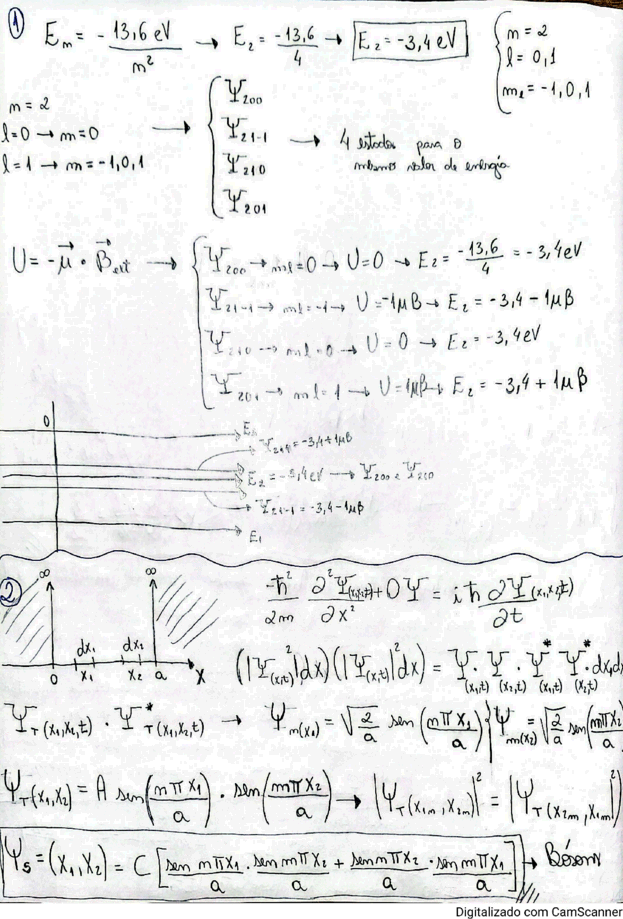 1
E_m = -13,6 eV / m² → E_2 = -13,6 / 4 → E_2 = -3,4 eV { m = 2
l = 0,1
m_l = -1,0,1
m = 2
l=0 → m=0
l=1 → m=-1,0,1
→ { Ψ_200
Ψ_21-1
Ψ_210
Ψ_201
→ 4 estados para o
mesmo valor de energia
U = -μ⃗ · B⃗_ext → { Ψ_200 → ml=0 → U=0 → E_2 = -13,6 / 4 = -3,4eV
Ψ_21-1 → ml=-1 → U=-1μB → E_2 = -3,4 - 1μB
Ψ_210 → ml=0 → U=0 → E_2 = -3,4eV
Ψ_201 → ml=1 → U=1μB → E_2 = -3,4 + 1μB
0
= -3,4+1μB
E_2 = -3,4eV → Ψ_200 e Ψ_210
Ψ_21-1 = -3,4-1μB
E_1
2
∞ ∞
dx_1 dx_2
0 x_1 x_2 a x
-ħ² / 2m ∂²Ψ(x_1,x_2,t) / ∂x² + 0Ψ = iħ ∂Ψ(x_1,x_2,t) / ∂t
(|Ψ(x,t)|²dx)(|Ψ(x,t)|²dx) = Ψ(x_1,t) · Ψ(x_2,t) · Ψ*(x_1,t) Ψ*(x_2,t) · dx_1d
Ψ_T(x_1,x_2,t) · Ψ*_T(x_1,x_2,t) → Ψ_m(x_1) = √(2/a) sen(mπx_1 / a) } Ψ_m(x_2) = √(2/a) sen(mπx_2 / a
Ψ_T(x_1,x_2) = A sen(mπx_1 / a) · sen(mπx_2 / a) → |Ψ_T(x_1m,x_2m)|² = |Ψ_T(x_2m,x_1m)|²
Ψ_S = (x_1,x_2) = C [sen mπx_1 / a · sen mπx_2 / a + sen mπx_2 / a · sen mπx_1 / a] → Bósons
Digitalizado com CamScanner